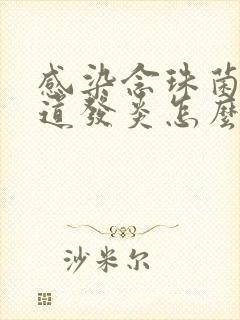 感染念珠菌
道發炎怎麼
沙米尔